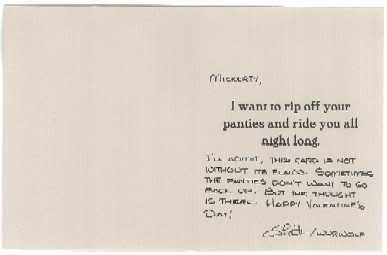 Mickerty,
I want to rip off your
panties and ride you all
night long.
I'll admit, this card is not
without its flaws. Sometimes
the panties don't want to go
back up. But the thought
is there. Happy Valentine's
Day!
/wurwolf